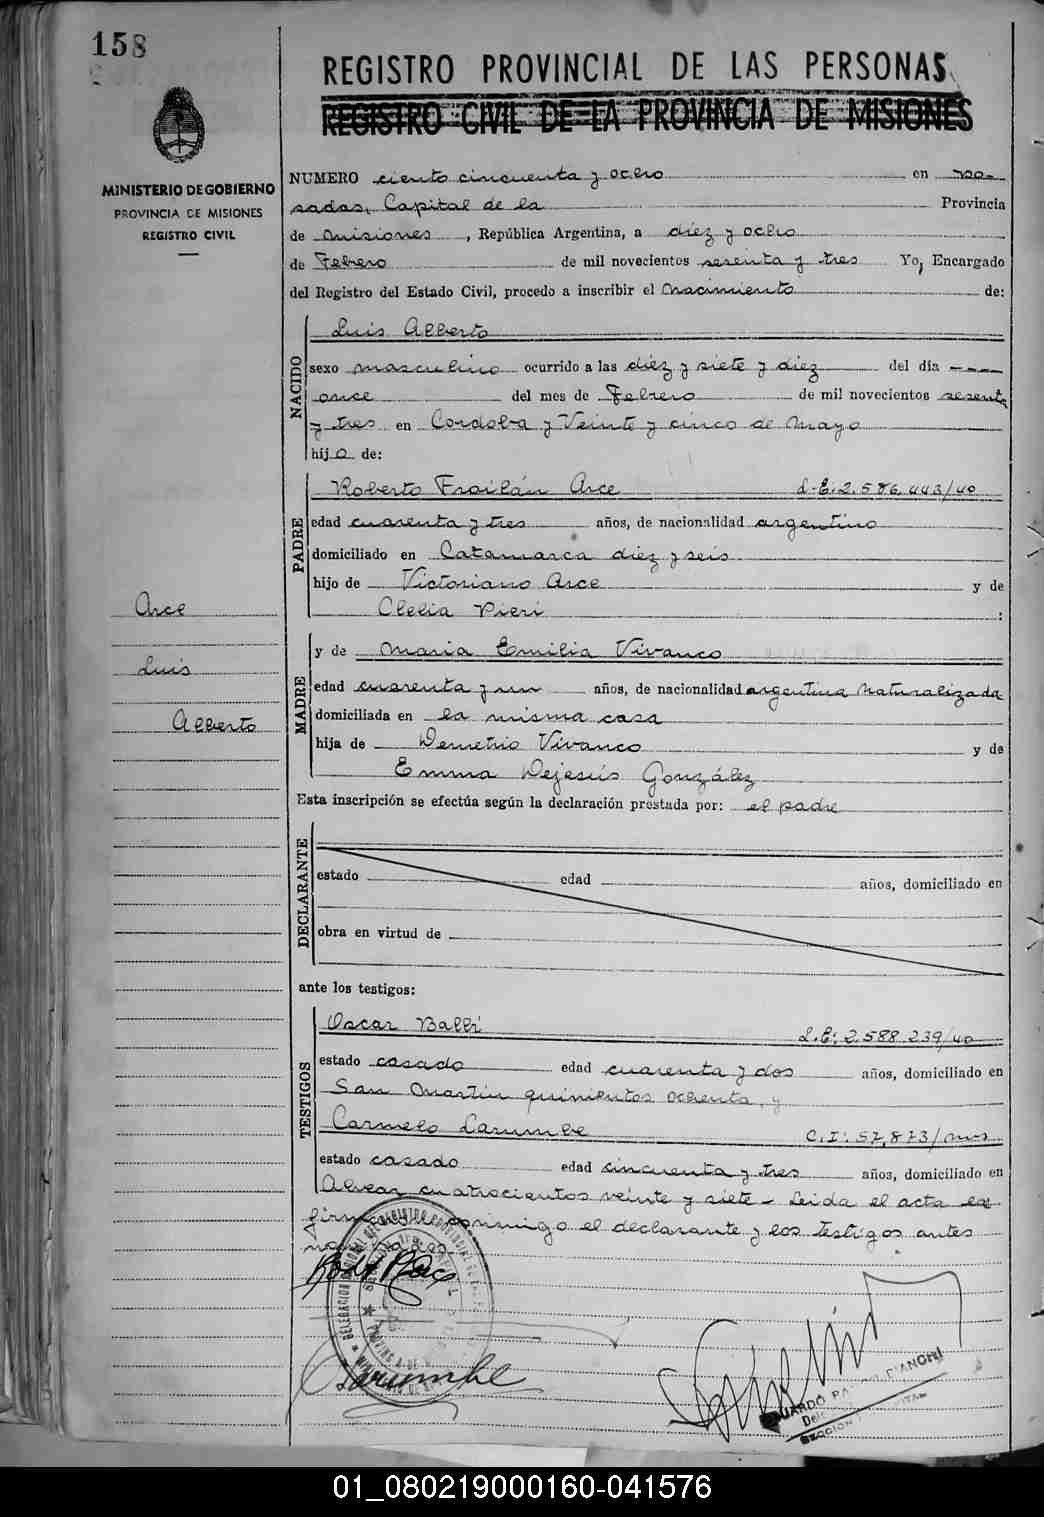 158
REGISTRO PROVINCIAL DE LAS PERSONAS
REGISTRO CIVIL DE LA PROVINCIA DE MISIONES
MINISTERIO DE GOBIERNO
PROVINCIA DE MISIONES
REGISTRO CIVIL
NUMERO ciento cincuenta y ocho en Po-
sadas, Capital de la Provincia
de Misiones, República Argentina, a diez y ocho
de Febrero de mil novecientos sesenta y tres Yo, Encargado
del Registro del Estado Civil, procedo a inscribir el Nacimiento de:
NACIDO
Luis Alberto
sexo masculino ocurrido a las diez y siete y diez del día ----
once del mes de Febrero de mil novecientos sesenta
y tres en Cordoba y Veinte y cinco de Mayo
hijo de:
PADRE
Roberto Froilán Arce L.E.2.586.443/40
edad cuarenta y tres años, de nacionalidad argentino
domiciliado en Catamarca diez y seis
hijo de Victoriano Arce y de
Clelia Pieri :
Arce
Luis
Alberto
MADRE
y de Maria Emilia Vivanco
edad cuarenta y un años, de nacionalidad argentina naturalizada
domiciliada en la misma casa
hija de Demetrio Vivanco y de
Emma Dejesús González
Esta inscripción se efectúa según la declaración prestada por: el padre
DECLARANTE
estado edad años, domiciliado en
obra en virtud de
ante los testigos:
TESTIGOS
Oscar Balbi L.E: 2.588.239/40
estado casado edad cuarenta y dos años, domiciliado en
San Martin quinientos ochenta, y
Carmelo Larumbe C.I: 57.873/mis
estado casado edad cincuenta y tres años, domiciliado en
Alvear cuatrocientos veinte y siete - Leida el acta la
firman conmigo el declarante y los testigos antes
Larumbe
01_080219000160-041576